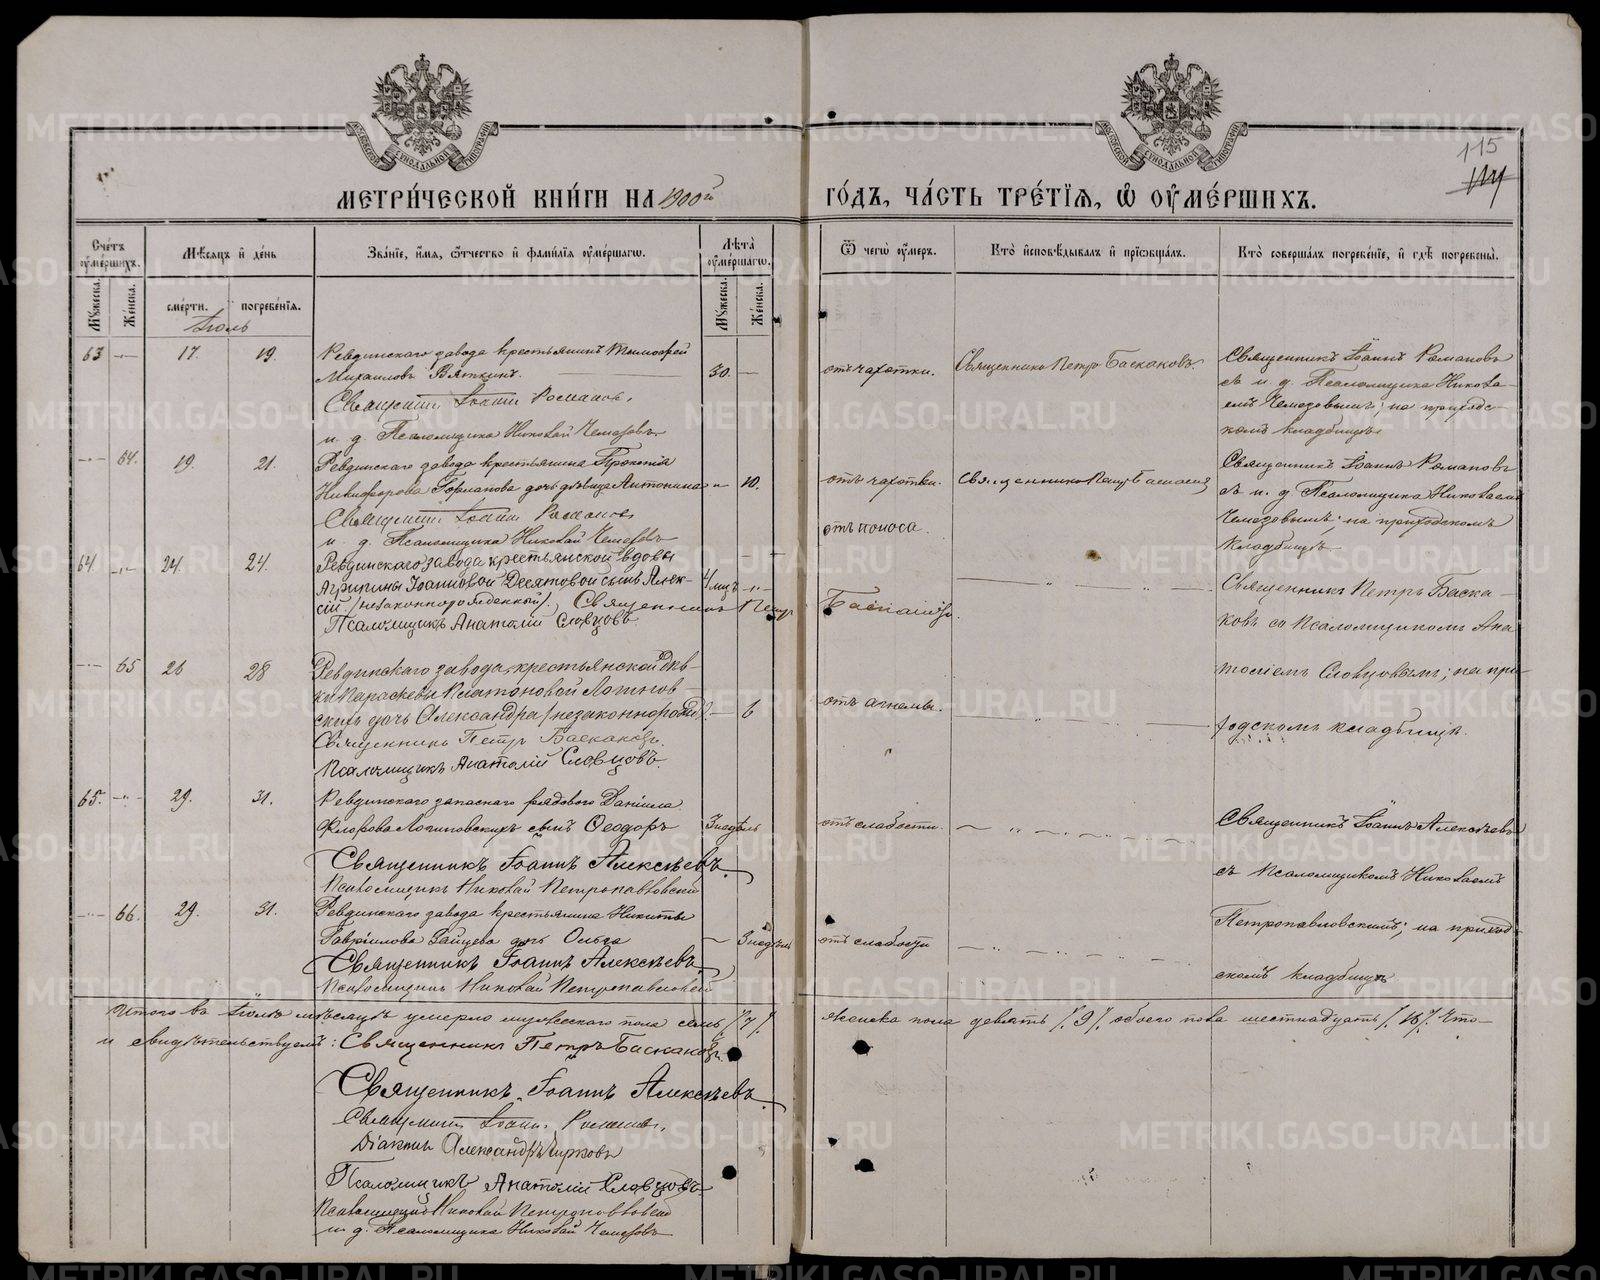 115
114
МЕТРИ́ЧЕСКОЙ КНИ́ГИ НА 1900й ГО́ДЪ, ЧА́СТЬ ТРЕ́ТІЯ, Ѽ ОУ҆МЕ́РШИХЪ.
Сче́тъ оу҆ме́ршихъ.
Му́жеска.
Же́нска.
Мѣ́сяцъ и҆ де́нь
сме́рти.
погребе́нїя.
Іюль
Зва́нїе, и҆́мя, ѻ҆́тчество и҆ фами́лїя оу҆ме́ршагѡ.
Лѣ́та оу҆ме́ршагѡ.
Му́жеска.
Же́нска.
Ѿ чегѡ̀ оу҆́меръ.
Кто̀ и҆сповѣ́дывалъ и҆ прїѻбща́лъ.
Кто̀ соверша́лъ погребе́нїе, и҆ гдѣ̀ погребены̀.
63 17. 19. Ревдинскаго завода крестьянинъ Тимофей
Михаиловъ Вяткинъ. 30. —
Священникъ Іоаннъ Романовъ.
и. д. Псаломщика Николай Чемезовъ
отъ чахотки. Священникъ Петръ Баскаковъ.
Священникъ Іоаннъ Романовъ
съ и. д. Псаломщика Никола-
емъ Чемезовымъ; на приходс-
комъ кладбищѣ
64. 19. 21. Ревдинскаго завода крестьянина Прокопія
Никифорова дочь дѣвица Антонина 10.
Священникъ Іоаннъ Романовъ
и. д. Псаломщика Николай Чемезовъ
отъ чахотки. Священникъ Петръ Баскаковъ
Священникъ Іоаннъ Романовъ
съ и. д. Псаломщика Николаемъ
Чемезовымъ; на приходскомъ
кладбищѣ
64. 24. 24. Ревдинскаго завода крестьянской вдовы
Агрипины Іоанновой Десятовой сынъ Алек-
сій /незаконнорожденный/. Священникъ Петръ Баскаковъ.
Псаломщикъ Анатолій Словцовъ
4 мцъ
отъ поноса.
Священникъ Петръ Баска-
ковъ со Псаломщикомъ Ана
толіемъ Словцовымъ; на при-
ходскомъ кладбищѣ.
65 26 28 Ревдинскаго завода, крестьянской дѣв-
ки Параскевы Платоновой Логинов-
скихъ дочь Александра /незаконнорожд/. — 6
Священникъ Петръ Баскаковъ.
Псаломщикъ Анатолій Словцовъ.
65. 29. 31. Ревдинскаго запаснаго рядового Даніила
Флорова Логиновскихъ сынъ Ѳеодоръ 3 недѣль
Священникъ Іоаннъ Алексѣевъ
Псаломщикъ Николай Петропавловскій
отъ слабости.
Священникъ Іоаннъ Алексѣевъ
съ Псаломщикомъ Николаемъ
Петропавловскимъ; на приход-
скомъ кладбищѣ
66. 29. 31. Ревдинскаго завода крестьянина Никиты
Гавріилова Зайцева дочь Ольга — 3 недѣль
Священникъ Іоаннъ Алексѣевъ
Псаломщикъ Николай Петропавловскій
отъ слабости
Итого въ Іюлѣ мѣсяцѣ умерло мужескаго пола семь /7/. женска пола девять /9/, обоего пола шестнадцать /16/. Что-
и свидѣтельствуемъ: Священникъ Петръ Баскаковъ.
Священникъ Іоаннъ Алексѣевъ
Священникъ Іоаннъ Романовъ.
Діаконъ Александръ
Псаломщикъ Анатолій Словцовъ
Псаломщикъ Николай Петропавловскій
и. д. Псаломщика Николай Чемезовъ
METRIKI.GASO-URAL.RU